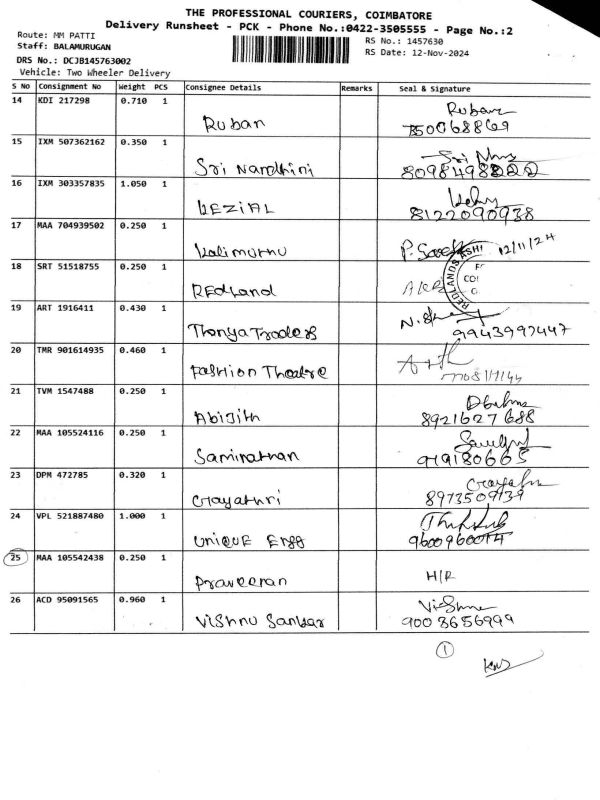 THE PROFESSIONAL COURIERS, COIMBATORE
Delivery Runsheet - PCK - Phone No.:0422-3505555 - Page No.:2
Route: MM PATTI
Staff: BALAMURUGAN
DRS No.: DCJB145763002
Vehicle: Two Wheeler Delivery
RS No.: 1457630
RS Date: 12-Nov-2024
S No Consignment No Weight PCS Consignee Details Remarks Seal & Signature
14 KDI 217298 0.710 1 Ruban Ruban
15 IXM 507362162 0.350 1 Sri Nandhini Sri
8098498222
16 IXM 303357835 1.050 1 KEZIAL
8122090938
17 MAA 704939502 0.250 1 Kalimuthu 12/11/24
18 SRT 51518755 0.250 1 REdLand
REDLANDS
19 ART 1916411 0.430 1 Thanya Traders
9943997447
20 TMR 901614935 0.460 1 Fashion Theatre
21 TVM 1547488 0.250 1 Abijith
8921627688
22 MAA 105524116 0.250 1 Saminathan
919180665
23 DPM 472785 0.320 1 Gayathri
8973509139
24 VPL 521887480 1.000 1 UNIQUE Engg
9600960014
25 MAA 105542438 0.250 1 Praveeran H/R
26 ACD 95091565 0.960 1 Vishnu Sankar Vishnu
9008656999
1